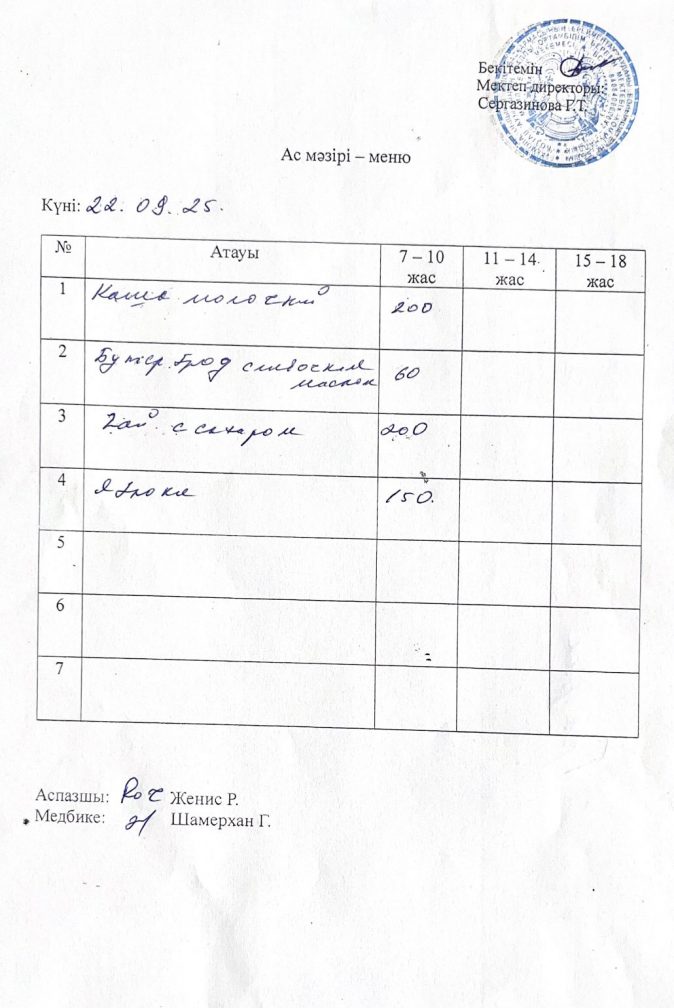 Бекітемін
Мектеп директоры:
Сергазинова Г.Т.
Ас мәзірі – меню
Күні: 22. 09. 25.
№ Атауы 7 – 10 жас 11 – 14 жас 15 – 18 жас
1 Каша молочный 200
2 Бутерброд сливочным
маслом 60
3 Чай с сахаром 200
4 Яблоки 150.
5
6
7
Аспазшы: Женис Р.
Медбике: Шамерхан Г.